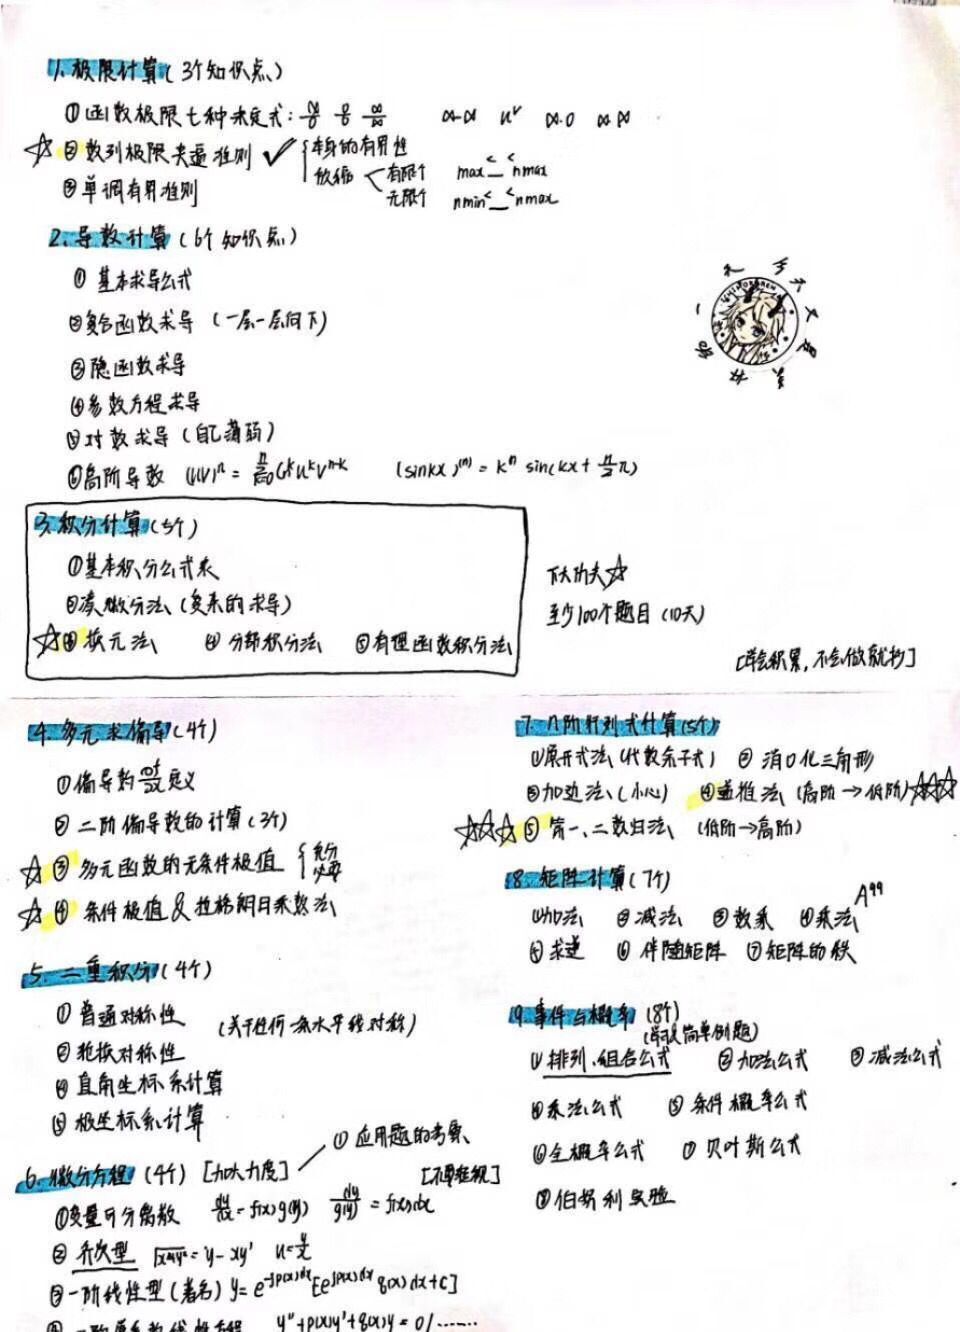 1.极限计算(3个知识点)
①函数极限七种未定式: 0/0 ∞/∞ ∞-∞ ∞·0
②数列极限夹逼准则 ✓ 本身的有界性
放缩 有限个 max ≤ _ ≤ nmax
无限个 nmin ≤ _ ≤ nmax
③单调有界准则
2.导数计算(6个知识点)
① 基本求导公式
②复合函数求导 (一层一层向下)
③隐函数求导
④参数方程求导
⑤对数求导(自己薄弱)
⑥高阶导数 (sinkx)⁽ⁿ⁾ = kⁿ sin(kx + n/2 π)
3.积分计算(5个)
①基本积分公式表
②凑微分法(复杂的求导)
③换元法 ④分部积分法 ⑤有理函数积分法
下大功夫☆
至少100个题目(10天)
[学会积累,不会做就抄]
4.多元求偏导(4个)
①偏导数的定义
② 二阶偏导数的计算(3个)
☆③多元函数的无条件极值 充分 必要
☆④条件极值&拉格朗日乘数法
5.二重积分(4个)
①普通对称性 (关于任何一条水平线对称)
②轮换对称性
直角坐标系计算
极坐标系计算
6.微分方程(4个) [加大力度] ①应用题的考察 [不要忽视]
①变量可分离散 dy/dx = f(x)g(y) dy/g(y) = f(x)dx
②齐次型 = y-xy'
③一阶线性型(著名) y= e^-∫p(x)dx [e^∫p(x)dx q(x)dx+c]
y''+p(x)y'+q(x)y = 0/……
7.n阶行列式计算(5个)
①展开式法(代数余子式) ② 消0化三角形
③加边法(小心) ④递推法(高阶→低阶)☆☆☆
☆☆☆⑤第一、二数归法 (低阶→高阶)
8.矩阵计算(7个)
①加法 ②减法 ③数乘 ④乘法 A⁹⁹
⑤求逆 ⑥ 伴随矩阵 ⑦矩阵的秩
9.事件与概率(8个)
简单例题)
①排列、组合公式 ②加法公式 ③减法公式
④乘法公式 ⑤条件概率公式
⑥全概率公式 ⑦贝叶斯公式
⑧伯努利实验